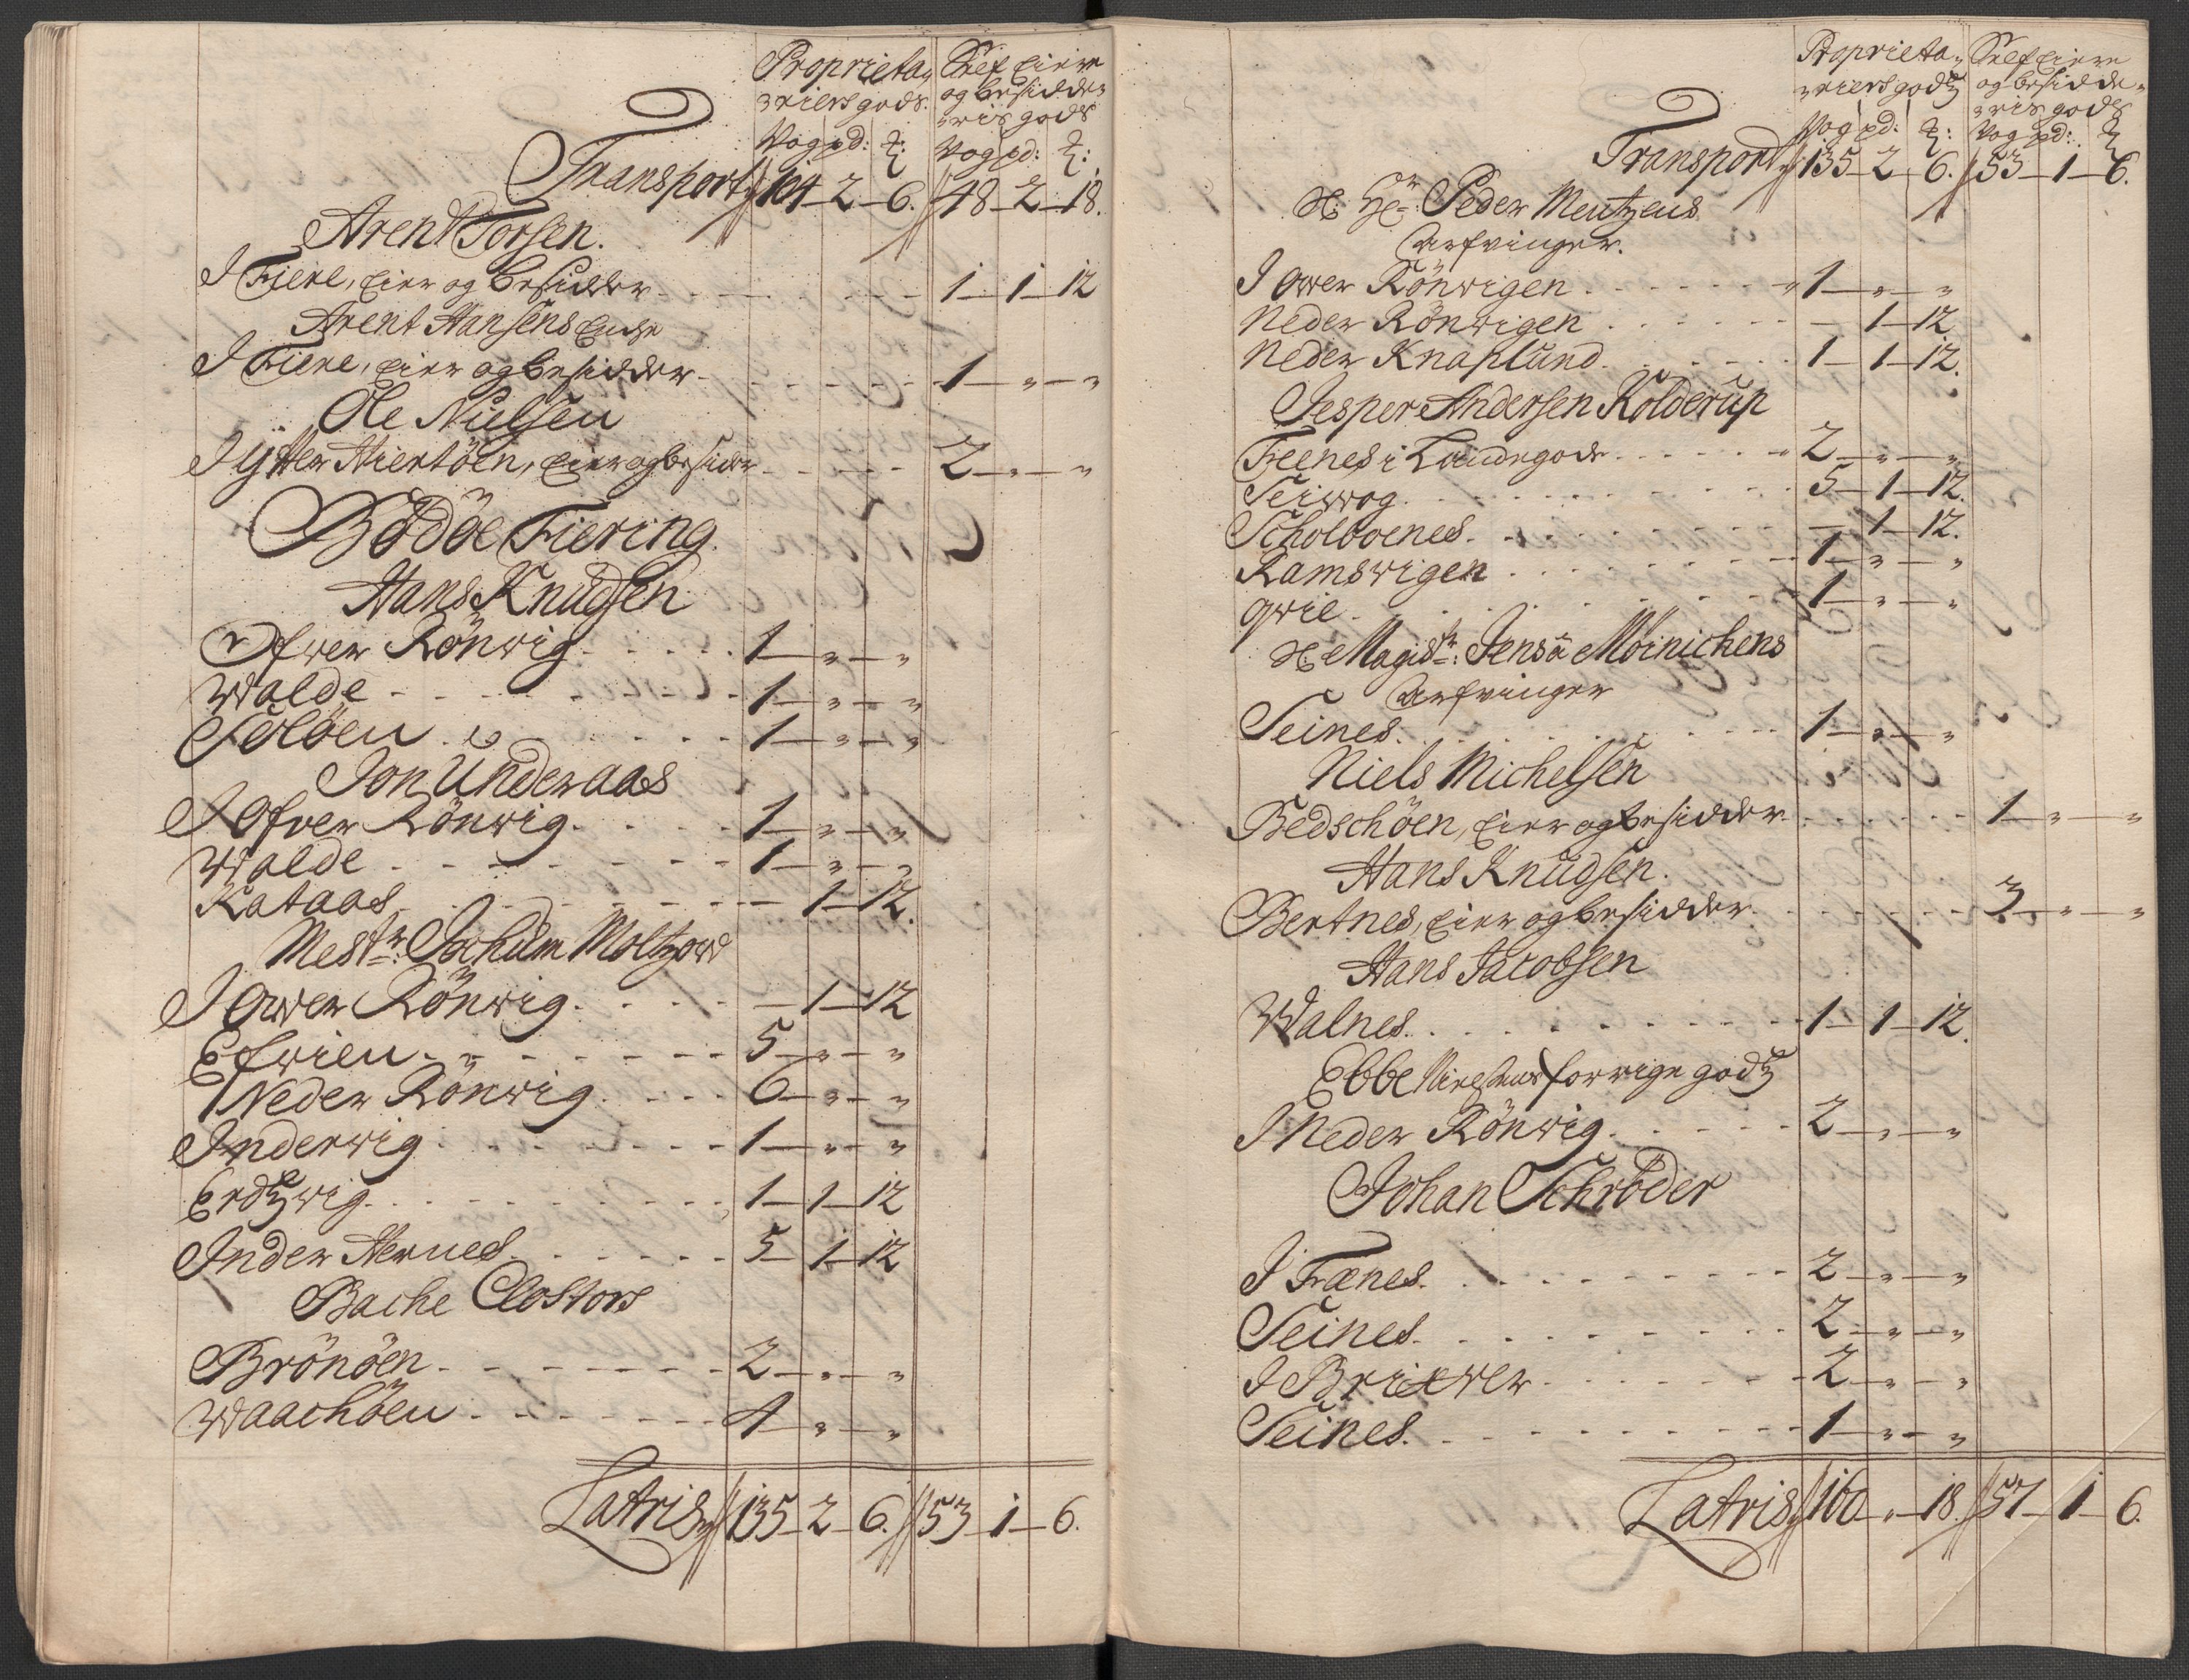 Proprieta-
-riers gods.
Self Eiere
og besidde-
-ris gods
Vog pd: ℔:
Vog pd: ℔:
Transport 104 - 2 - 6. 48 - 2 - 18.
Arent Torsen.
I Fiere, Eier og besidder 1 - 1 - 12
Arent Hansens Encke
I Fiere, Eier og besidder 1 - " - "
Ole Nielsen
I ytter Hiertöen, Eier og besider 2 - " - "
Bodöe Fiering
Hans Knudsen
Ofwer Rönwig 1 - " - "
Walde 1 - " - "
Söelöen 1 - " - "
Jon Underaas
I Ofver Rönwig 1 - " - "
Walde 1 - " - "
Kataas - 1 - 12.
Mestr: Jochum Moltzow
I Ower Rönwig - 1 - 12
Efwien 5 - " - "
Neder Rönwig 6 - " - "
Inderwig 1 - " - "
Erdtzwig 1 - 1 - 12
Inder Hernes 5 - 1 - 12
Bache Closters
Brönöen 2 - " - "
Waachöen 4 - " - "
Latris 135 - 2 - 6. 53 - 1 - 6.
Proprieta-
-riers godtz
Self Eiere
og besidde-
-ris gods
Vog pd: ℔:
Vog pd: ℔
Transport 135 - 2 - 6. 53 - 1 - 6.
Sl: Hr: Peder Mentzens
Arfvinger.
I Ower Rönwigen 1 - " - "
Neder Rönwigen - 1 - 12
Neder Knaplund 1 - 1 - 12.
Jesper Andersen Kolderup
Feenes i Landegode 2 - " - "
Seiwog 5 - 1 - 12.
Scholboenes - 1 - 12.
Ramswigen 1 - " - "
Qwie 1 - " - "
Sl: Magistr: Jens à Möinichens
Arfvinger
Seines 1 - " - "
Niels Michelsen
Bedschöen, Eier og besidder 1 - " - "
Hans Knudsen.
Bertnes, Eier og besidder 3 - " - "
Hans Jacobsen
Walnes 1 - 1 - 12.
Ebbe Nielsens forrige godtz
I Neder Rönwig 2 - " - "
Johan Schröder
I Fænes 2 - " - "
Seines 2 - " - "
I Brixwer 2 - " - "
Seines 1 - " - "
Latris 160 - " - 18. 57 - 1 - 6.